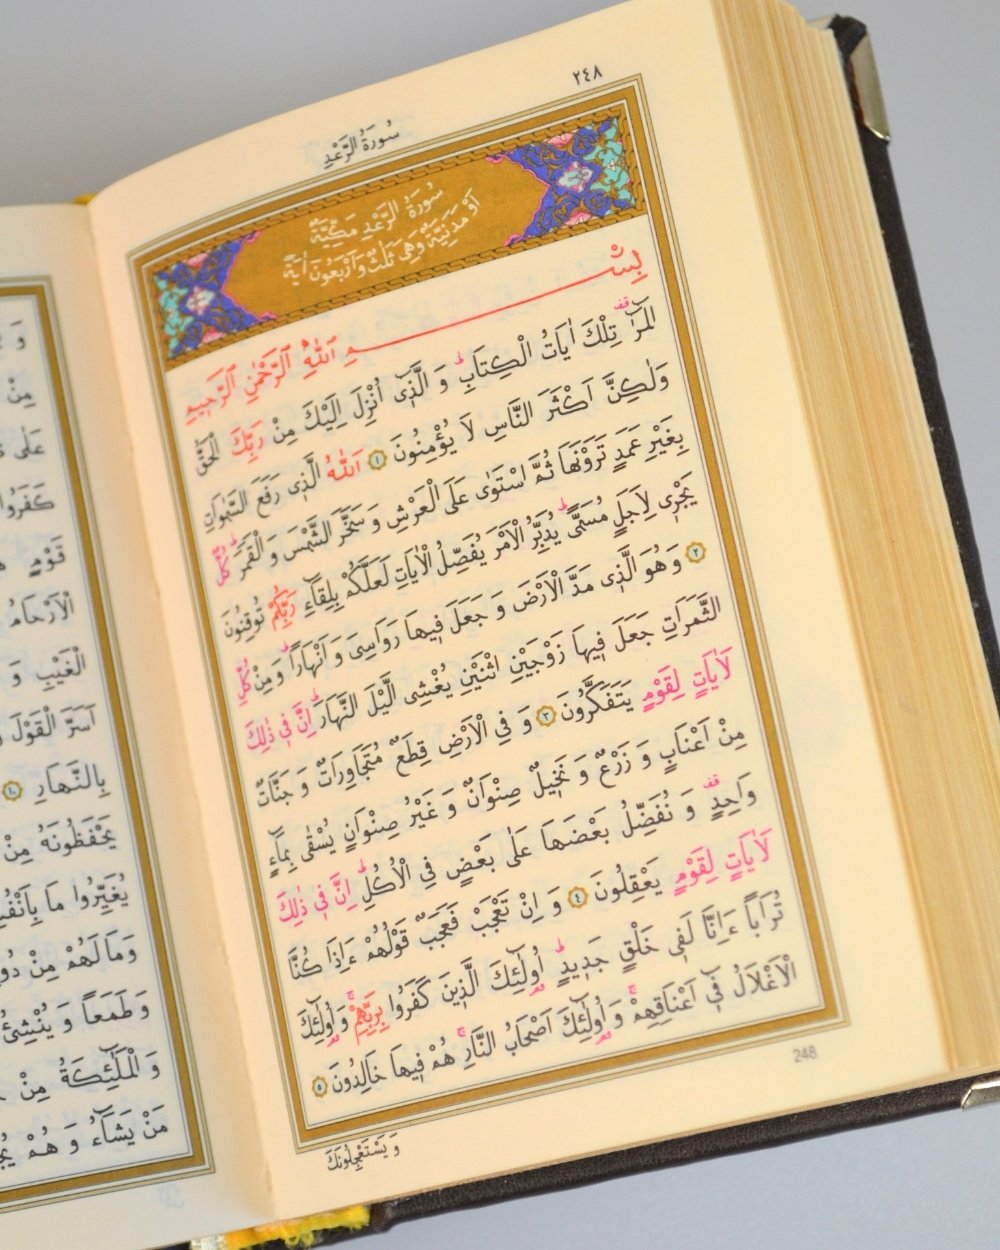 ٢٤٨
سُورَةُ الرَّعْدِ
سُورَةُ الرَّعْدِ مَكِّيَّةٌ
اَوْ مَدَنِيَّةٌ وَهِىَ ثَلٰثٌ وَاَرْبَعُونَ اٰيَةً
بِسْمِ اللّٰهِ الرَّحْمٰنِ الرَّحِيمِ
الٓمٓرٰ قف تِلْكَ اٰيَاتُ الْكِتَابِ ط وَ الَّذٖٓى اُنْزِلَ اِلَيْكَ مِنْ رَبِّكَ الْحَقُّ
وَلٰكِنَّ اَكْثَرَ النَّاسِ لَا يُؤْمِنُونَ ١ اَللّٰهُ الَّذٖى رَفَعَ السَّمٰوَاتِ
بِغَيْرِ عَمَدٍ تَرَوْنَهَا ثُمَّ اسْتَوٰى عَلَى الْعَرْشِ وَ سَخَّرَ الشَّمْسَ وَ الْقَمَرَ ط كُلٌّ
يَجْرٖى لِاَجَلٍ مُسَمًّى ط يُدَبِّرُ الْاَمْرَ يُفَصِّلُ الْاٰيَاتِ لَعَلَّكُمْ بِلِقَٓاءِ رَبِّكُمْ تُوقِنُونَ
٢ وَ هُوَ الَّذٖى مَدَّ الْاَرْضَ وَ جَعَلَ فٖيهَا رَوَاسِىَ وَ اَنْهَاراً ط وَ مِنْ كُلِّ
الثَّمَرَاتِ جَعَلَ فٖيهَا زَوْجَيْنِ اثْنَيْنِ يُغْشِى الَّيْلَ النَّهَارَ ط اِنَّ فٖى ذٰلِكَ
لَاٰيَاتٍ لِقَوْمٍ يَتَفَكَّرُونَ ٣ وَ فِى الْاَرْضِ قِطَعٌ مُتَجَاوِرَاتٌ وَ جَنَّاتٌ
مِنْ اَعْنَابٍ وَ زَرْعٌ وَ نَخٖيلٌ صِنْوَانٌ وَ غَيْرُ صِنْوَانٍ يُسْقٰى بِمَٓاءٍ
وَاحِدٍ قف وَ نُفَضِّلُ بَعْضَهَا عَلٰى بَعْضٍ فِى الْاُكُلِ ط اِنَّ فٖى ذٰلِكَ
لَاٰيَاتٍ لِقَوْمٍ يَعْقِلُونَ ٤ وَ اِنْ تَعْجَبْ فَعَجَبٌ قَوْلُهُمْ ءَاِذَا كُنَّا
تُرَاباً ءَاِنَّا لَفٖى خَلْقٍ جَدٖيدٍ ط اُولٰٓئِكَ الَّذٖينَ كَفَرُوا بِرَبِّهِمْ ج وَ اُولٰٓئِكَ
الْاَغْلَالُ فٖٓى اَعْنَاقِهِمْ ج وَ اُولٰٓئِكَ اَصْحَابُ النَّارِ ج هُمْ فٖيهَا خَالِدُونَ ٥
248
وَ يَسْتَعْجِلُونَكَ
مِنْ
عَلٰى
كَفَرُوا
قَوْمٍ
الْاَرْحَامُ
الْغَيْبِ وَ
اَسَرَّ الْقَوْلَ
بِالنَّهَارِ ١٠
يَحْفَظُونَهُ مِنْ
يُغَيِّرُوا مَا
وَمَا لَهُمْ مِنْ
وَ طَمَعاً وَ يُنْشِئُ
وَ الْمَلٰٓئِكَةُ مِنْ
مَنْ يَشَٓاءُ وَ هُمْ